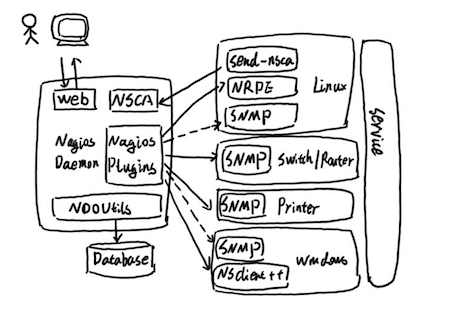 web
NSCA
Nagios
Daemon
Nagios
Plugins
NDOUtils
Database
send-nsca
NRPE
SNMP
Linux
SNMP
Switch/Router
SNMP
Printer
SNMP
NSclient++
Windows
Service